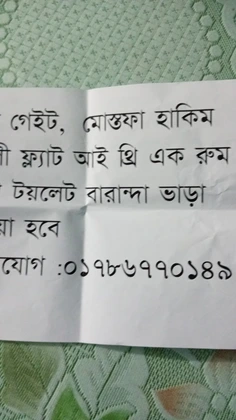 গেইট, মোস্তফা হাকিম
ফ্ল্যাট আই থ্রি এক রুম
টয়লেট বারান্দা ভাড়া
হবে
:০১৭৮৬৭৭০১৪৯